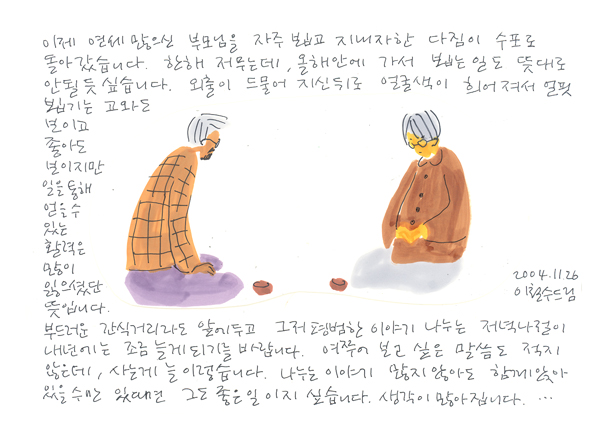 이제 연세 많으신 부모님을 자주 뵙고 지내자한 다짐이 수포로
돌아갔습니다. 한해 저무는데, 올해안에 가서 뵙는 일도 뜻대로
안될 듯 싶습니다. 외출이 드물어 지신뒤로 얼굴색이 희어져서 얼핏
뵙기는 고와도
보이고
좋아도
보이지만
일을통해
얻을수
있는
활력은
많이
잃으셨단
뜻입니다.
부드러운 간식거리라도 앞에두고 그저 평범한 이야기 나누는 저녁나절이
내년에는 조금 늘게 되기를 바랍니다. 여쭈어 보고 싶은 말씀도 적지
않은데, 사는게 늘 이렇습니다. 나누는 이야기 많지않아도 함께앉아
있을수만 있대면 그도 좋은일이지 싶습니다. 생각이 많아집니다. …
2004.11.26
이철수드림